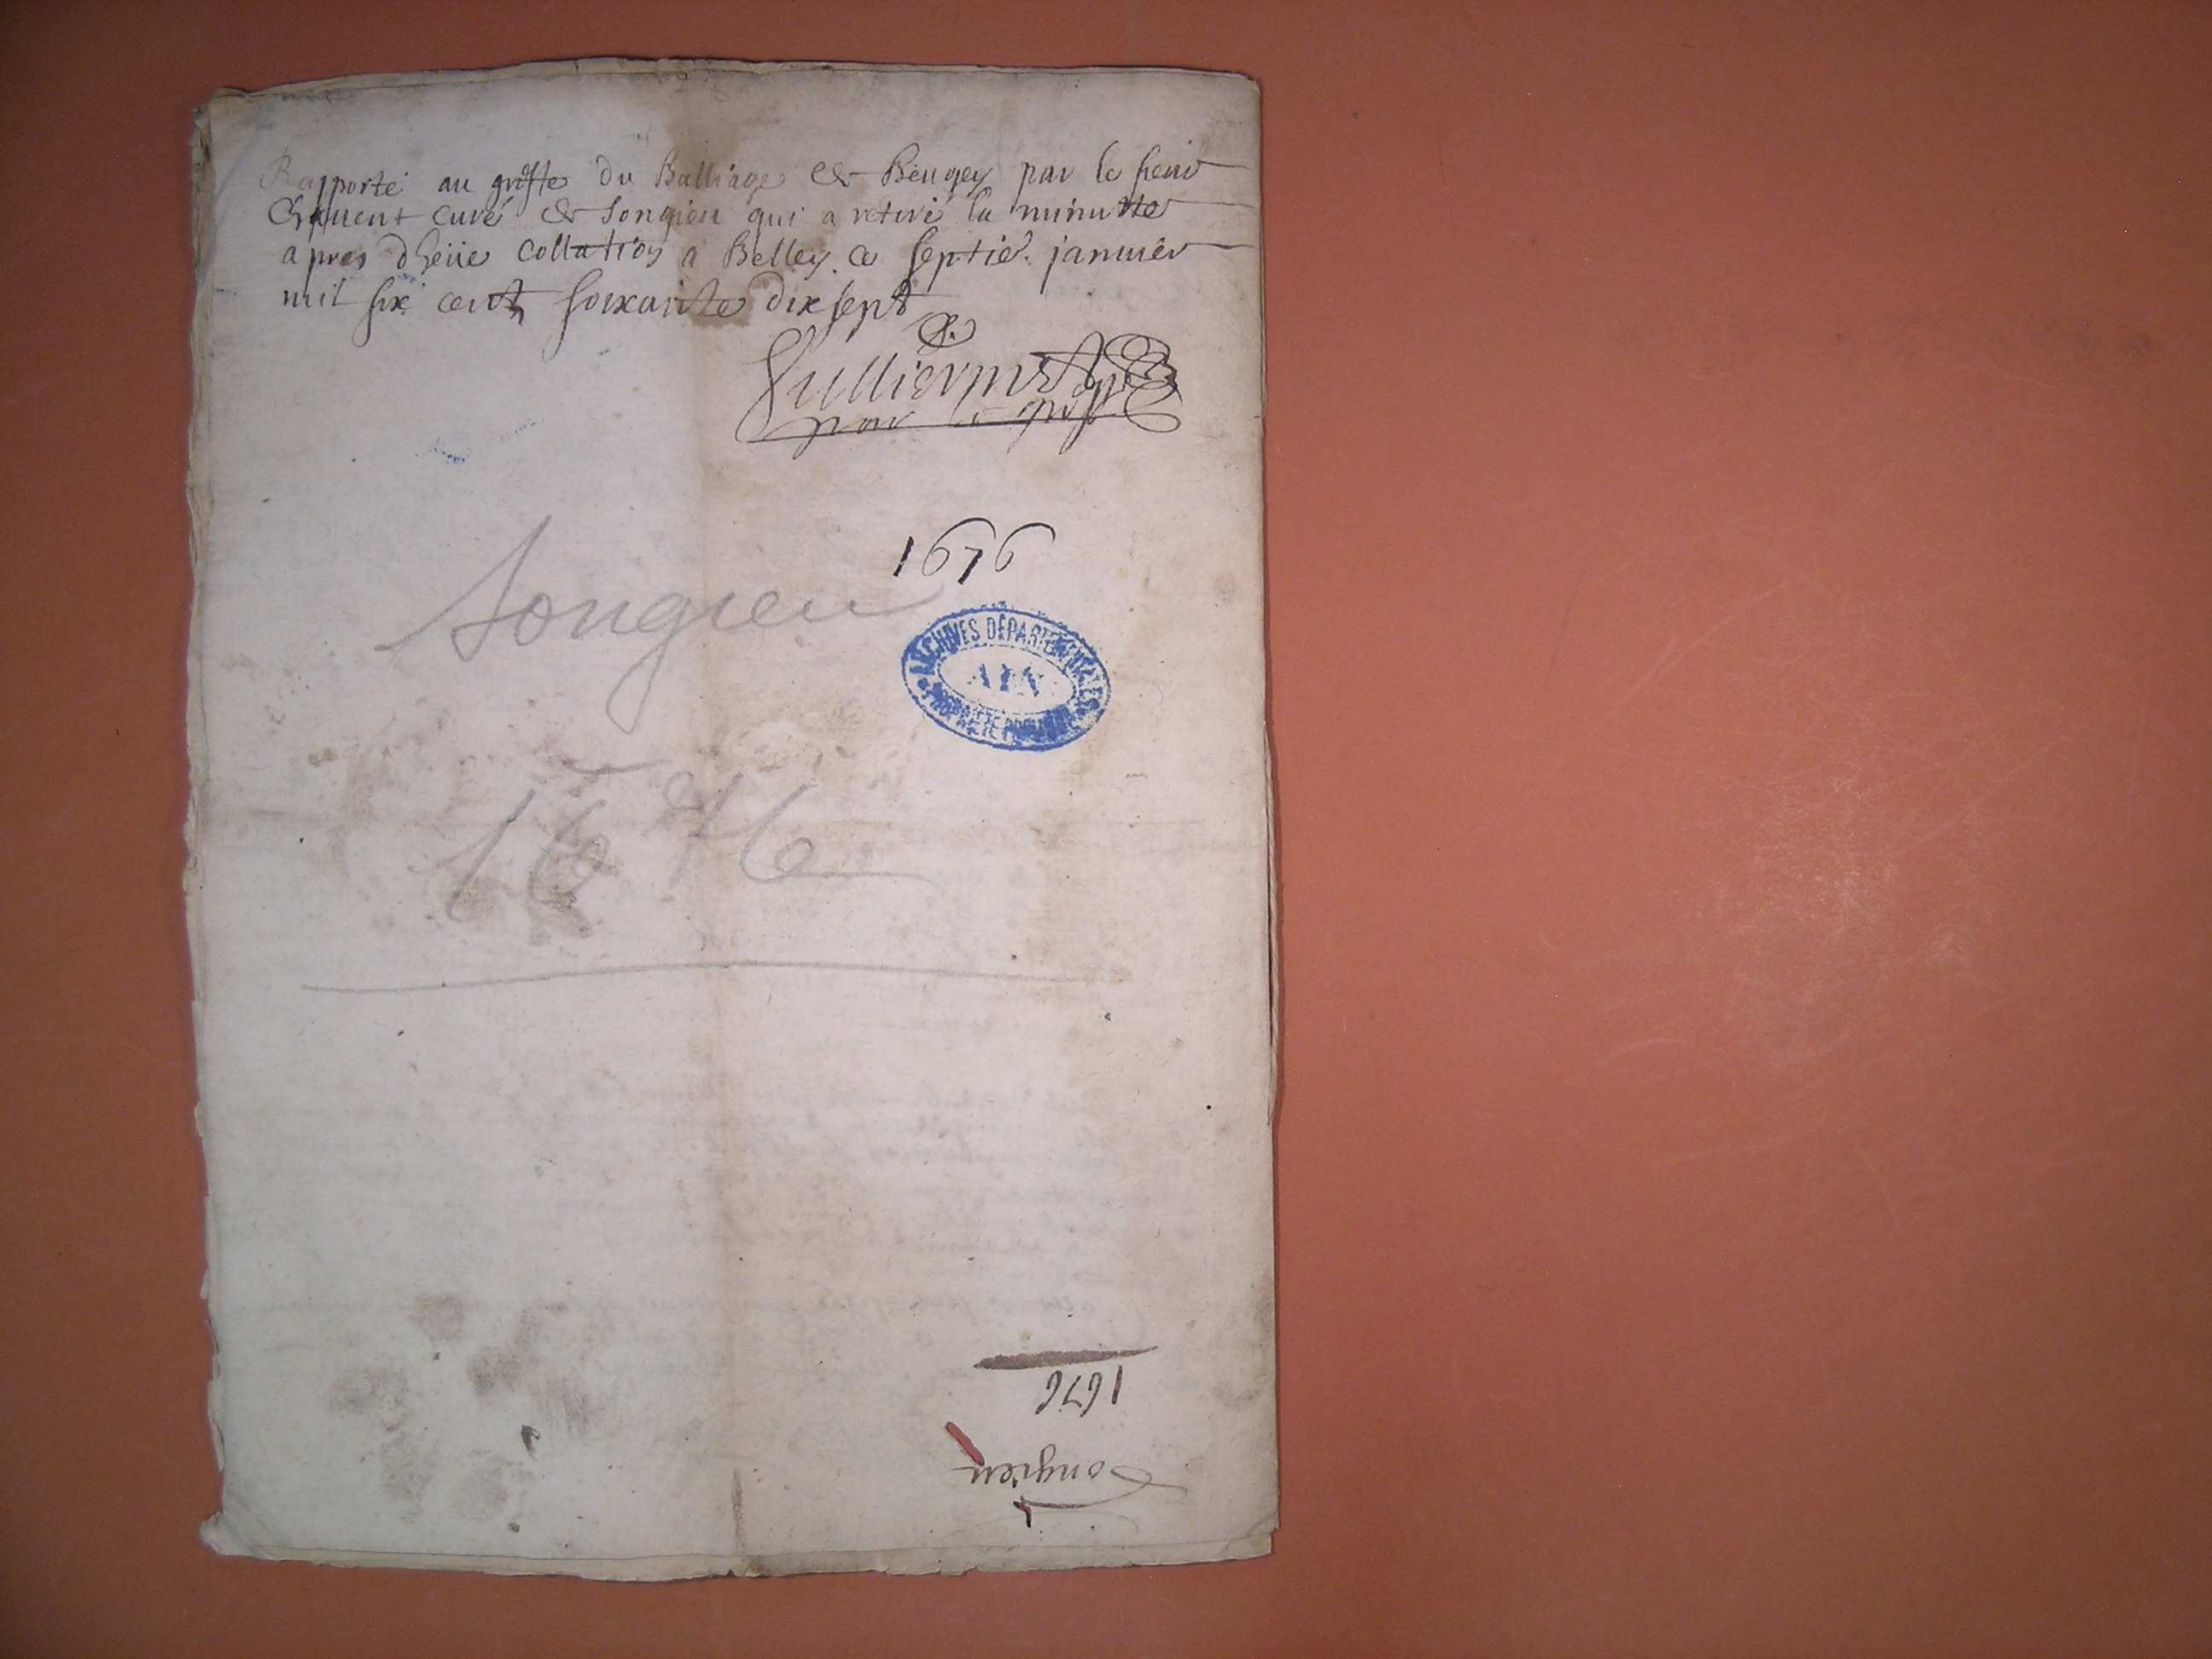 Rapporté au greffe du Balliage de Beugey par le sieur
curé de Songieu qui a retiré la minutte
apres dheüe collation a Belley ce septie. janvier
mil six cent soixante dix sept
Gullierme
pour le greffe
1676
Songieu
ARCHIVES DÉPARTEMENTALES
AIN
PROPRIÉTÉ PUBLIQUE
1676
1676
Songieu